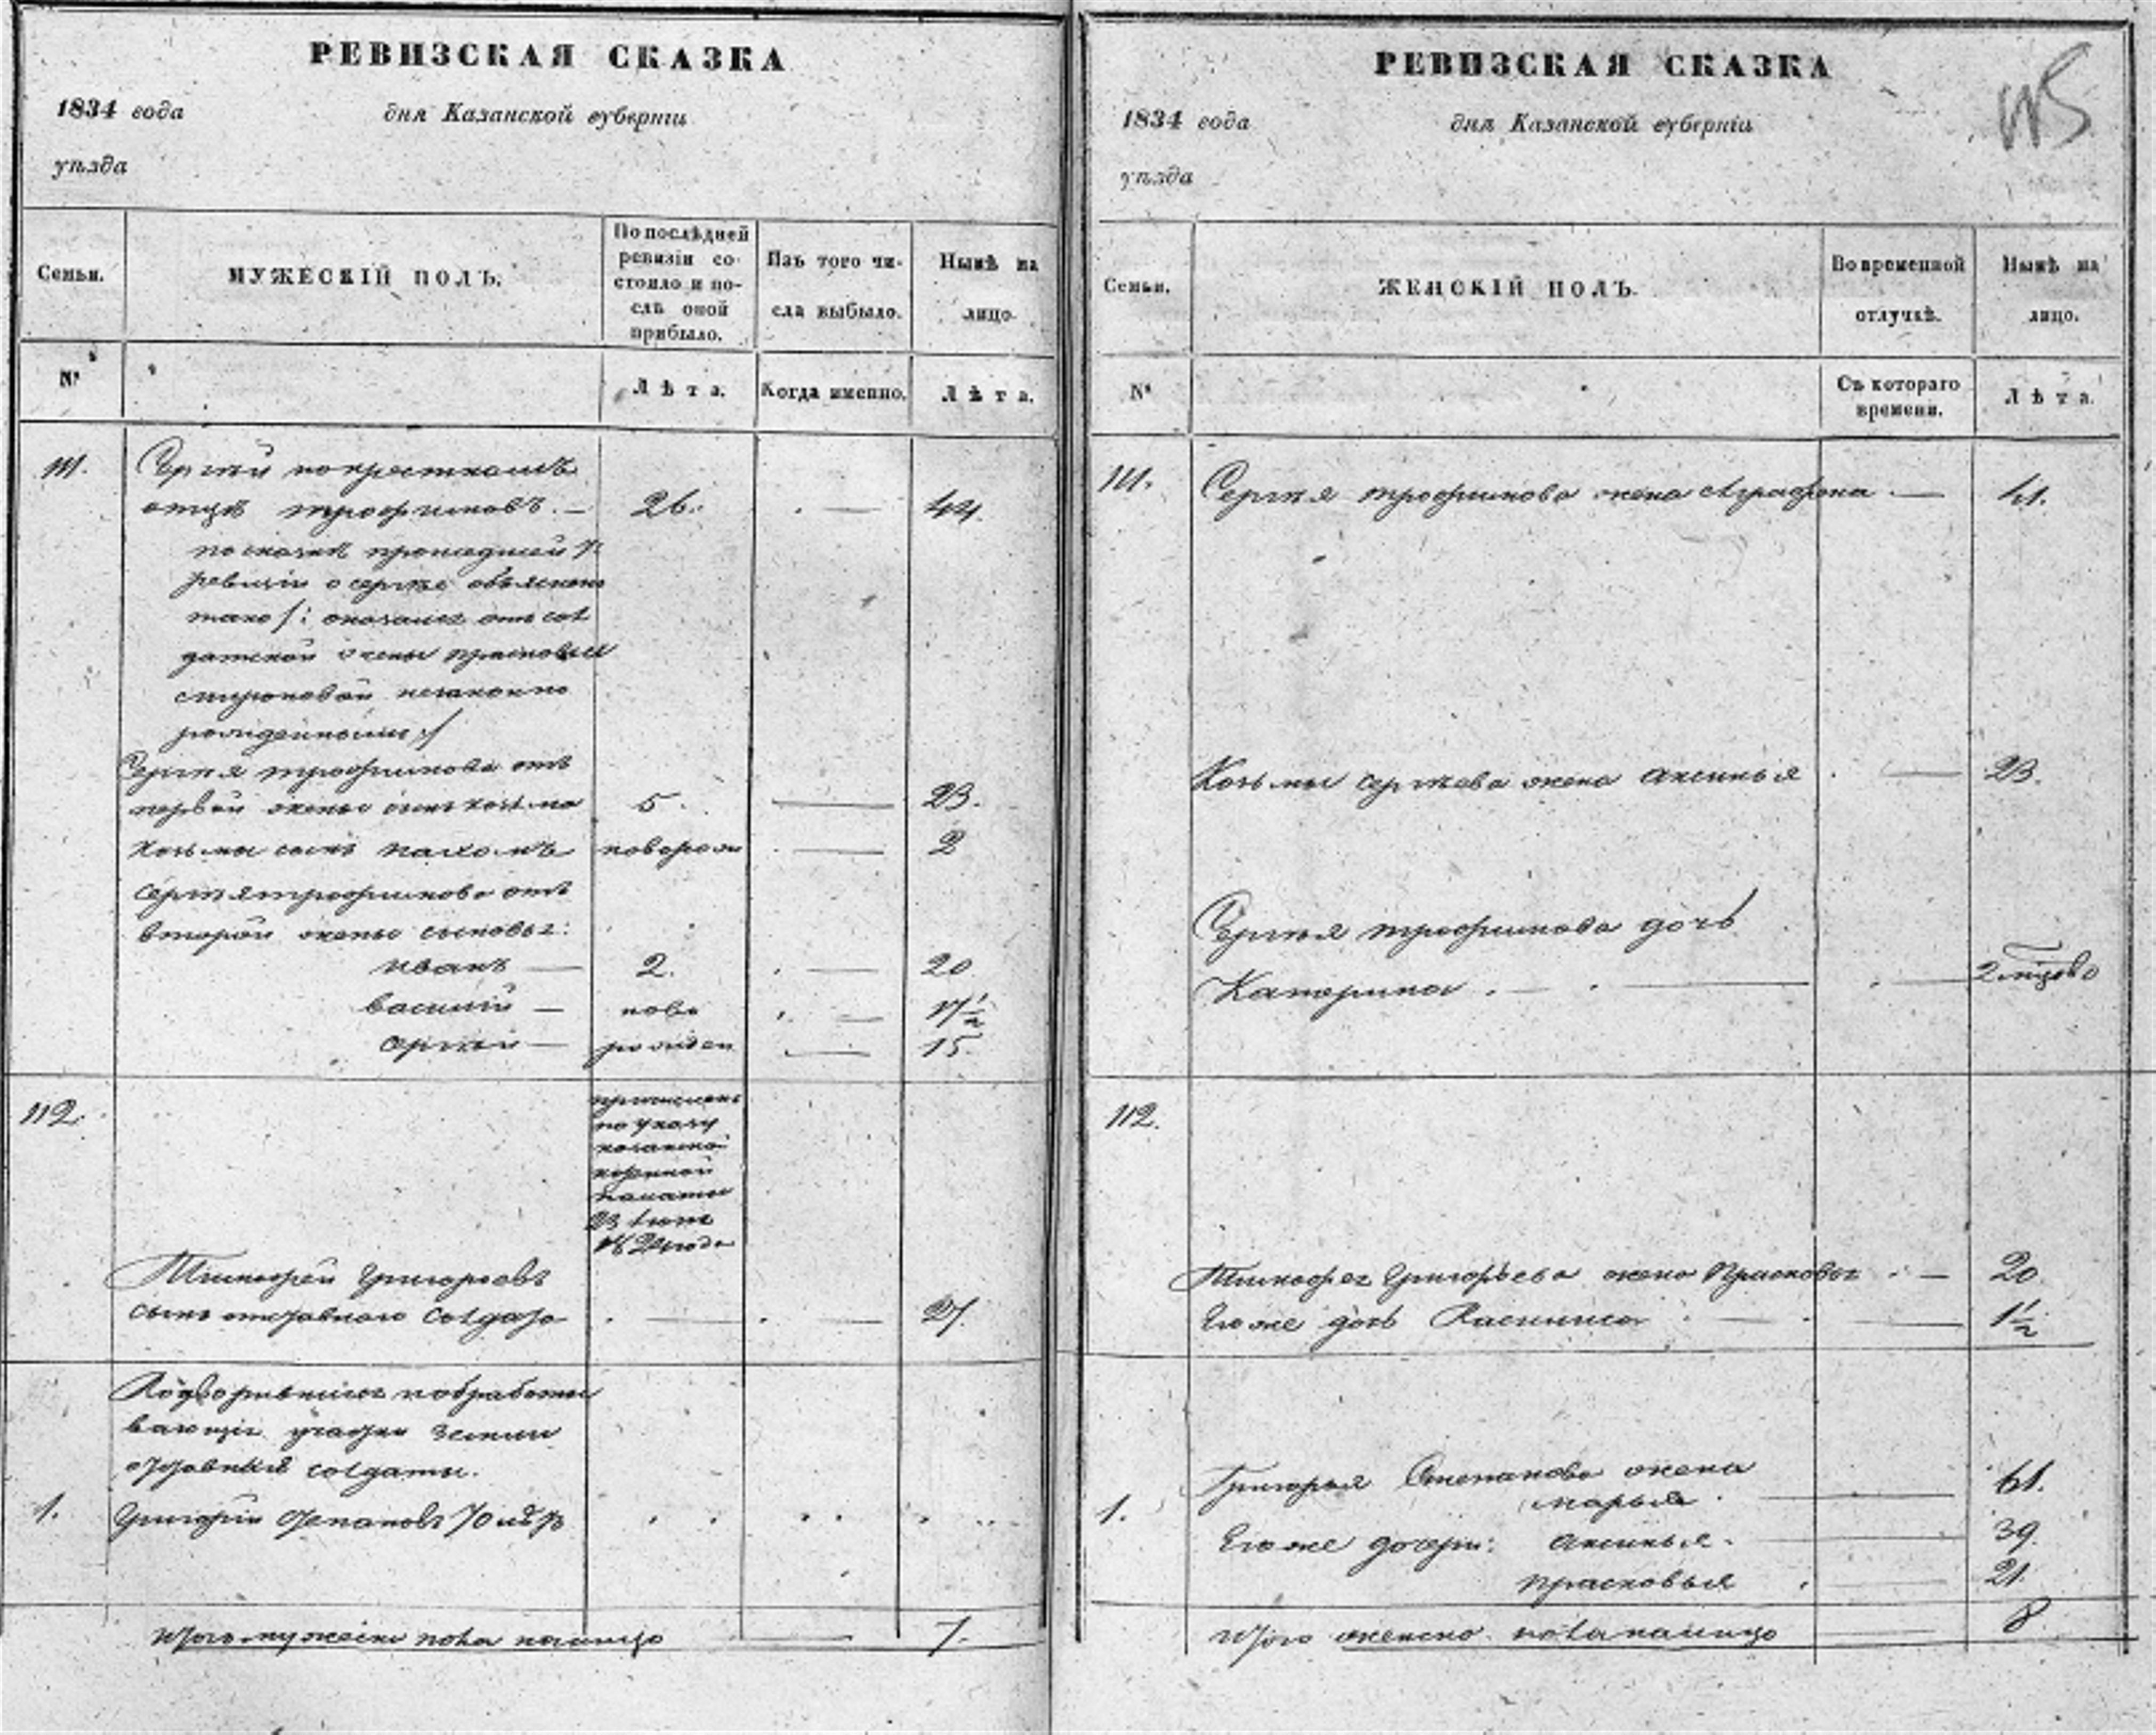 РЕВИЗСКАЯ СКАЗКА
1834 года дня Казанской губерніи
уѣзда
Семьи. МУЖЕСКІЙ ПОЛЪ. По послѣдней ревизіи состояло и послѣ оной прибыло. Изъ того числа выбыло. Нынѣ на лицо.
№ Лѣта. Когда именно. Лѣта.
111. Сергѣй по крестномъ
отцѣ трофимовъ. — 26. — 44.
по сказкѣ прошедшей 7
ревизіи о сергѣе объяснено
тако /: оказался отъ сол
датской жены прасковьи
незаконно
рожденнымъ :/
Сергѣя трофимова отъ
первой жены сынъ козьма 5. — 23.
Козьмы сынъ пахомъ новорож — 2
Сергѣя трофимова отъ
второй жены сыновья:
иванъ — 2. — 20
василій — ново — 17½
сергѣй — рожден — 15.
112. причисленъ
по указу
казанской
казенной
палаты
23
182 года
Тимофей Григорьевъ
сынъ отставного солдата — — 27.
Водворившіися и обработы
вающіе участки земли
отставныя солдаты.
1. Григорій Степановъ 70 лѣтъ
Итого мужеска пола налицо — 7.
РЕВИЗСКАЯ СКАЗКА
1834 года дня Казанской губерніи
уѣзда
Семьи. ЖЕНСКІЙ ПОЛЪ. Во временной отлучкѣ. Нынѣ на лицо.
№ Съ котораго времени. Лѣта.
111. Сергѣя трофимова жена Аграфена — 41.
Козьмы сергѣева жена аксинья — 23.
Сергѣя трофимова дочь
Катерина — —
112.
Тимофея Григорьева жена Прасковья — 20
Его же дочь — — 1½
1. Григорья Степанова жена
марья — 61.
Его же дочери: аксинья — 39.
прасковья — 21.
Итого женска пола налицо — 8